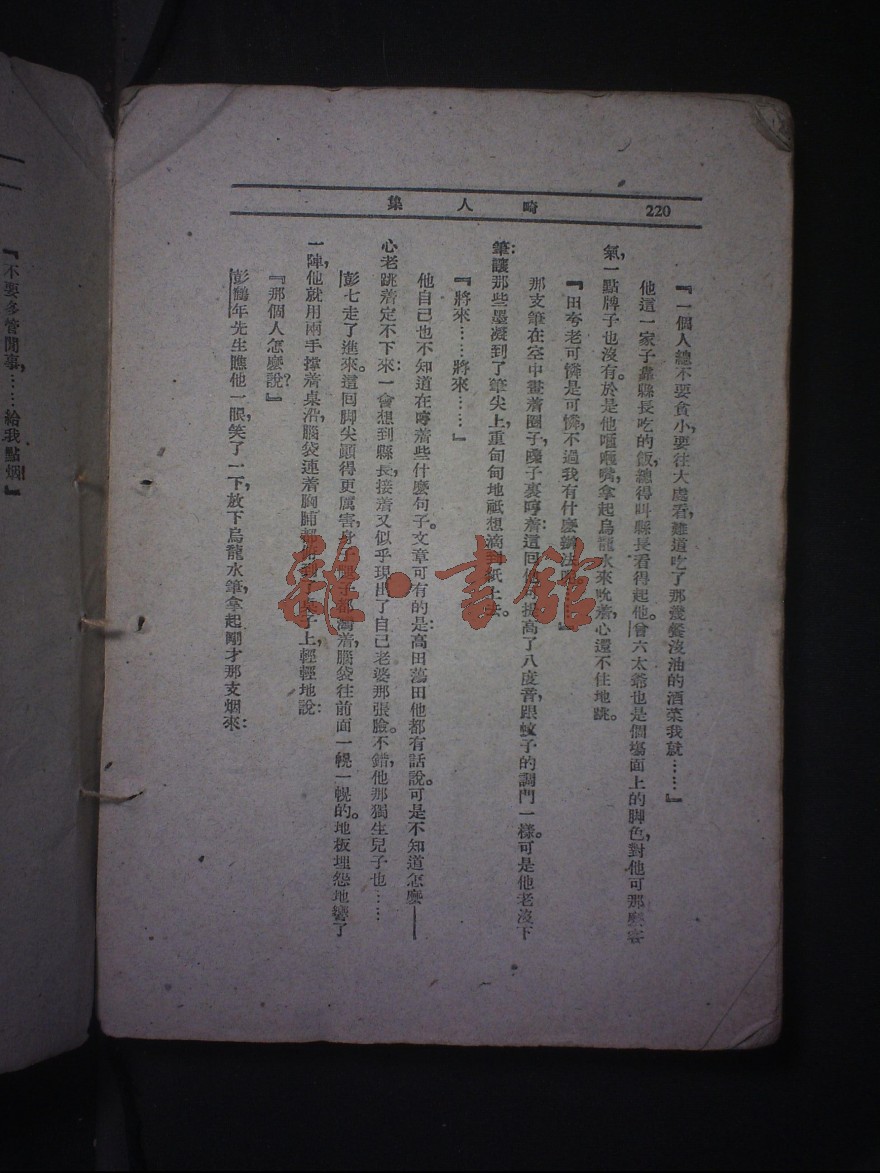 220
畸人集
『一個人總不要貪小，要往大處看，難道吃了那幾餐沒油的酒菜我就……』
他這一家子靠縣長吃的飯，總得叫縣長看得起他。曾六太爺也是個場面上的脚色，對他可那麼客
氣，一點牌子也沒有。於是他嘔嘔嘴，拿起烏龍水來吮着，心還不住地跳。
『田夸老可憐是可憐，不過我有什麽辦法呢……』
那支筆在空中畫着圈子，嗓子裏哼着：這回他可提高了八度音，跟蚊子的調門一樣。可是他老沒下
筆：讓那些墨凝到了筆尖上，重甸甸地祗想滴到紙上去。
『將來……將來……』
他自己也不知道在哼着些什麽句子。文章可有的是：高田蕩田他都有話說。可是不知道怎麽——
心老跳着定不下來：一會想到縣長，接着又似乎現出了自己老婆那張臉。不錯，他那獨生兒子也……
彭七走了進來。這回脚尖顚得更厲害，身子腿子都彎着，腦袋往前面一幌一幌的。地板埋怨地響了
一陣，他就用兩手撑着桌沿，腦袋連着胸脯都到了桌子上，輕輕地說：
『那個人怎麽說？』
彭鶴年先生瞧他一眼，笑了一下，放下烏龍水筆，拿起剛才那支烟來：
『不要多管閒事，……給我點烟！』
雜·書館